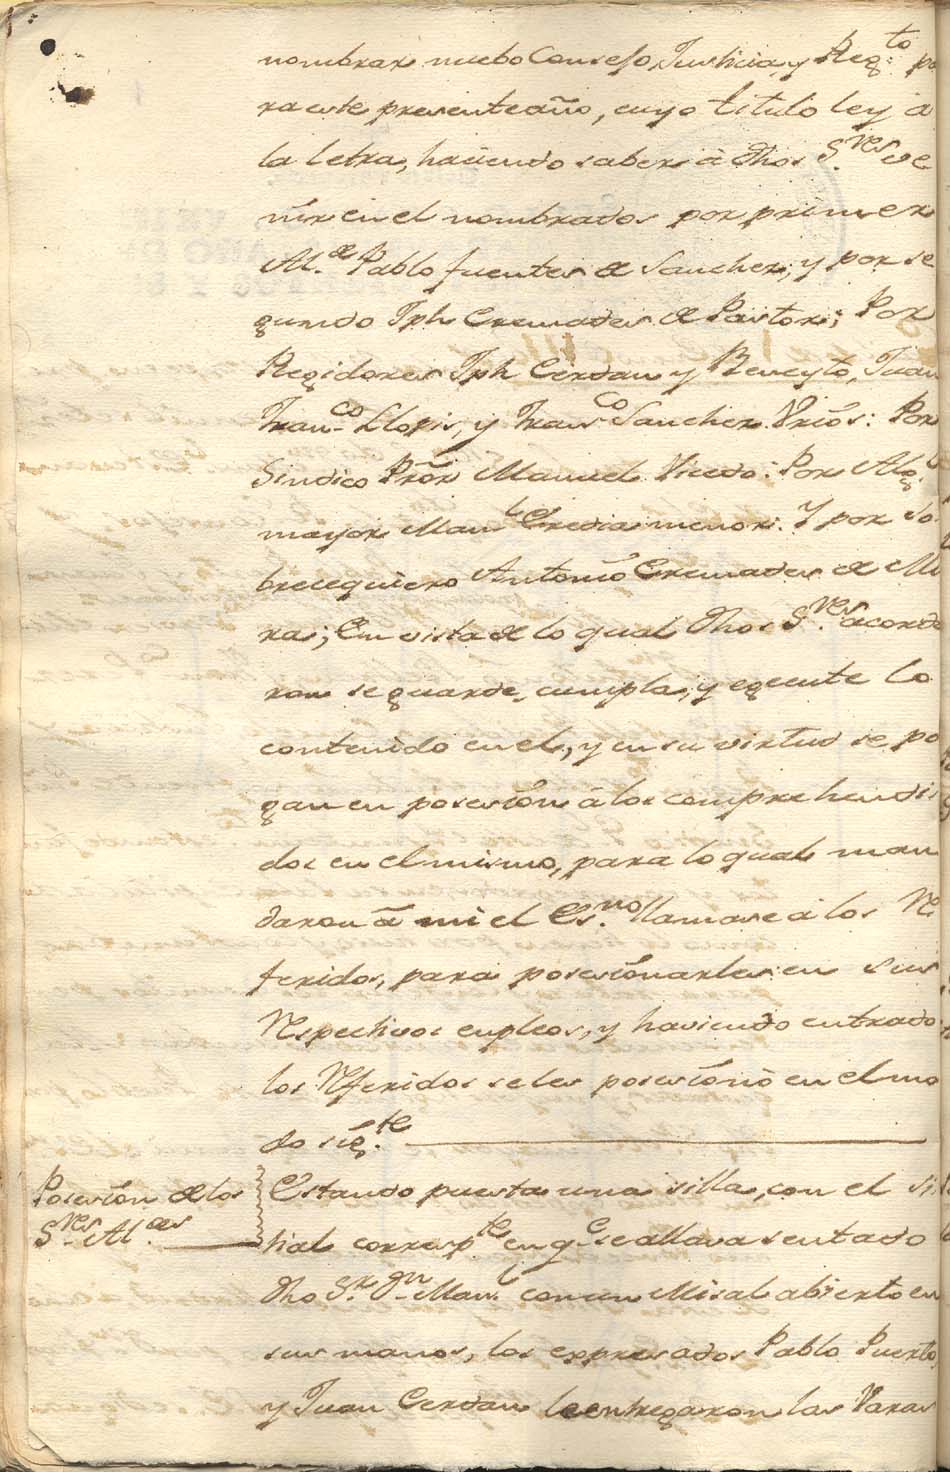 nombrar nuebo Consejo, Justicia, y Reg.to pa
ra este presente año, cuyo titulo ley a
la letra, haciendo saber à dhos S.res ve
nir en el nombrados por primer
Al.de Pablo fuentes de Sanchez, y por se
gundo Jph Cremades de Pastor; Por
Regidores Jph Cerdan y Beneyto, Juan
Fran.co Llopis, y Fran.co Sanchez Vrios: Por
Sindico Prõr Manuel Vicedo: Por Alg.l
mayor Man.l Credia menor: Y por So
breceguiero Antonio Cremades de Mi
ra; En vista de lo qual dhos S.res acorda
ron se guarde, cumpla, y egecute lo
contenido en el, y en su virtud se po
gan en posesion à los comprehendi
dos en el mismo, para lo qual man
daron à mi el Es.no llamase à los Re
feridos, para posesionarles en sus
Respectivos empleos, y haviendo entrado
los Referidos se les posesionò en el mo
do sig.te
Posesion de los
S.res Al.des
Estando puesta una silla, con el si
tial corresp.te en q.e se allava sentado
dho S.r D.n Man.l con un Misal abierto en
sus manos, los expresados Pablo Puerto,
y Juan Cerdan le entregaron las Varas